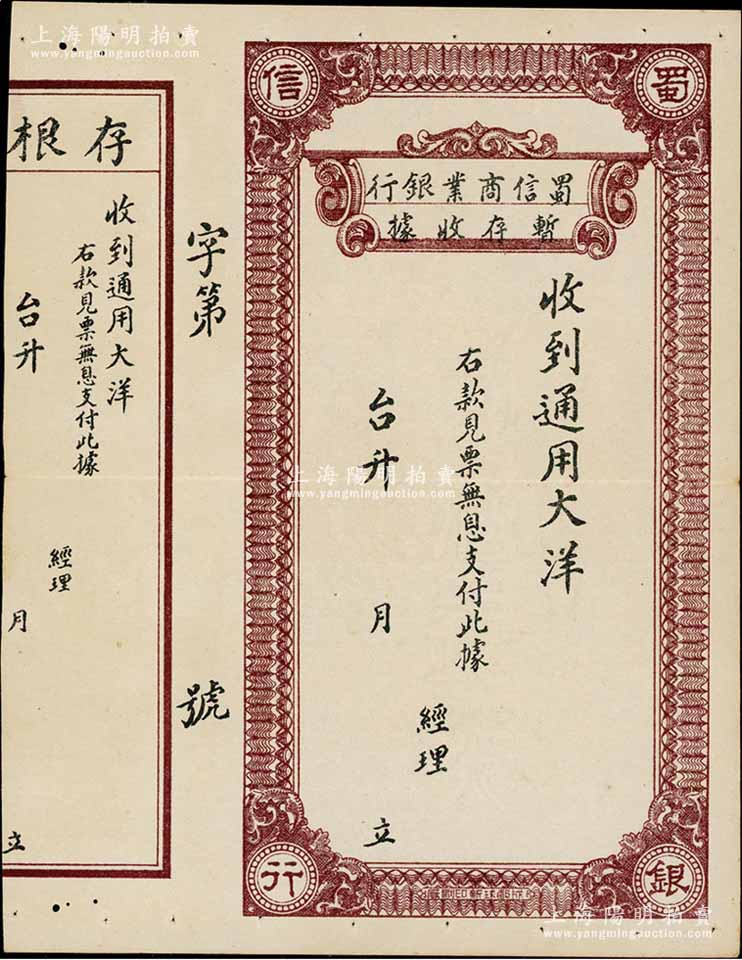 上海陽明拍賣
www.yangmingauction.com
上海陽明拍賣
www.yangmingauction.com
蜀信銀行
蜀信商業銀行
暫存收據
收到通用大洋
右款見票無息支付此據
台升
經理
月
立
字第
號
存根
收到通用大洋
右款見票無息支付此據
台升
經理
月
立
上海陽明拍賣
www.yangmingauction.com
上海陽明拍賣
www.yangmingauction.com